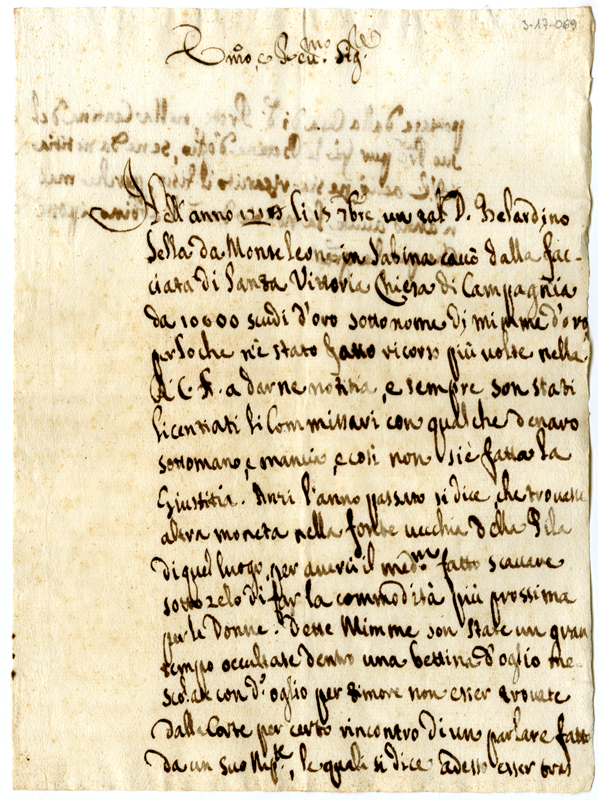 3-17-069
Ill.mo, e Rev.mo Sig.re
Nell'anno li 15 7bre, un tal D. Belardino
Sella da Monteleone in Sabina cavò dalla fac-
ciata di Santa Vittoria Chiesa di Campagna
da 10000 scudi d'oro sotto nome di mimme d'oro
per lo che n'è stato fatto ricorso più volte nella
R. C. A. a darne notitia, e sempre son stati
licentiati li Commissari con qualche denaro
sottomano, e mancia, e così non si è fatta la
Giustitia. Anzi l'anno passato si dice, che trovasse
altra moneta nella fonte vecchia della Pila
di quel luogo, per avervi il med.mo fatto scavare
sotto zelo di far la commodità più prossima
per le Donne. Dette Mimme son state un gran
tempo occultate dentro una bettina d'oglio me-
scolate con d.o oglio per timore non esser trovate
dalla Corte per certo rincontro di un parlare fatto
da un suo Nip.te, le quali si dice adesso esser